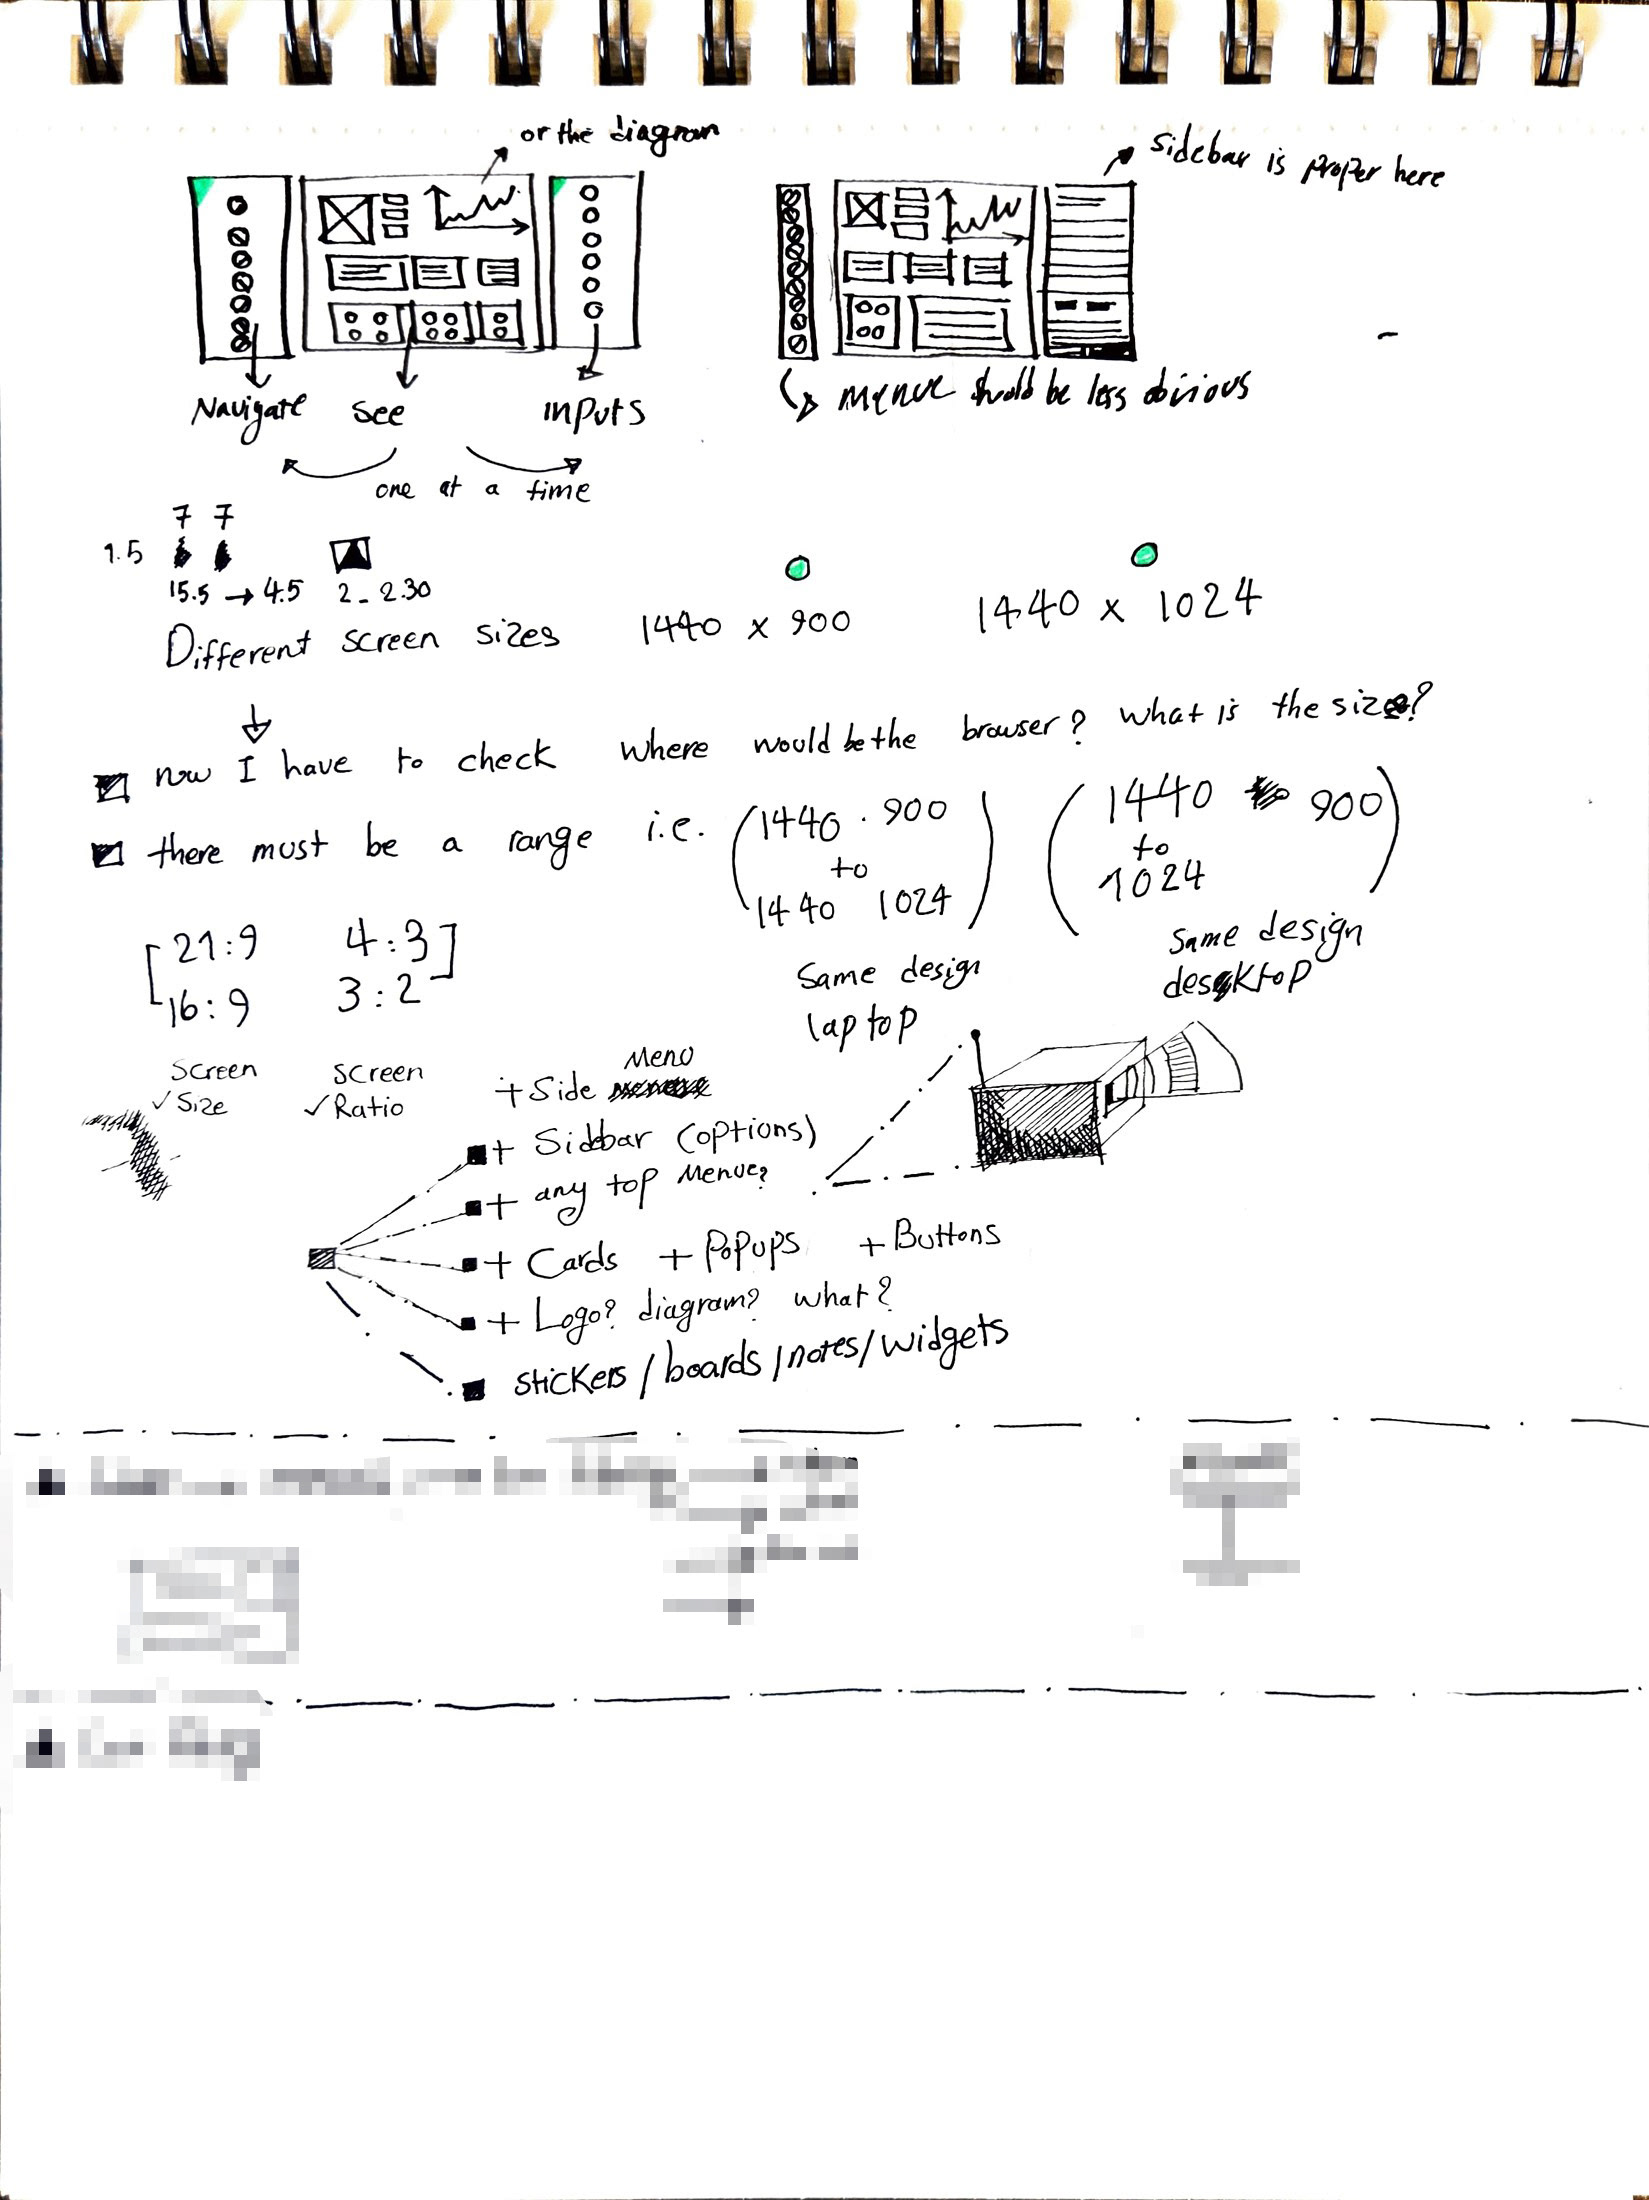 or the diagram
sidebar is proper here
Navigate see inputs
menue should be less obvious
one at a time
7 7
1.5
15.5 → 4.5 2 - 2.30
Different screen sizes 1440 x 900 1440 x 1024
now I have to check where would be the browser? what is the size?
there must be a range i.e. (1440 . 900 to 1440 1024) (1440 900 to 1024)
Same design laptop
Same design desktop
[21:9 4:3]
[16:9 3:2]
Screen Size
✓
Screen Ratio
✓
+ Side Menu
+ Sidbar (options)
+ any top Menue?
+ Cards + Popups + Buttons
+ Logo? diagram? what?
stickers / boards / notes / widgets